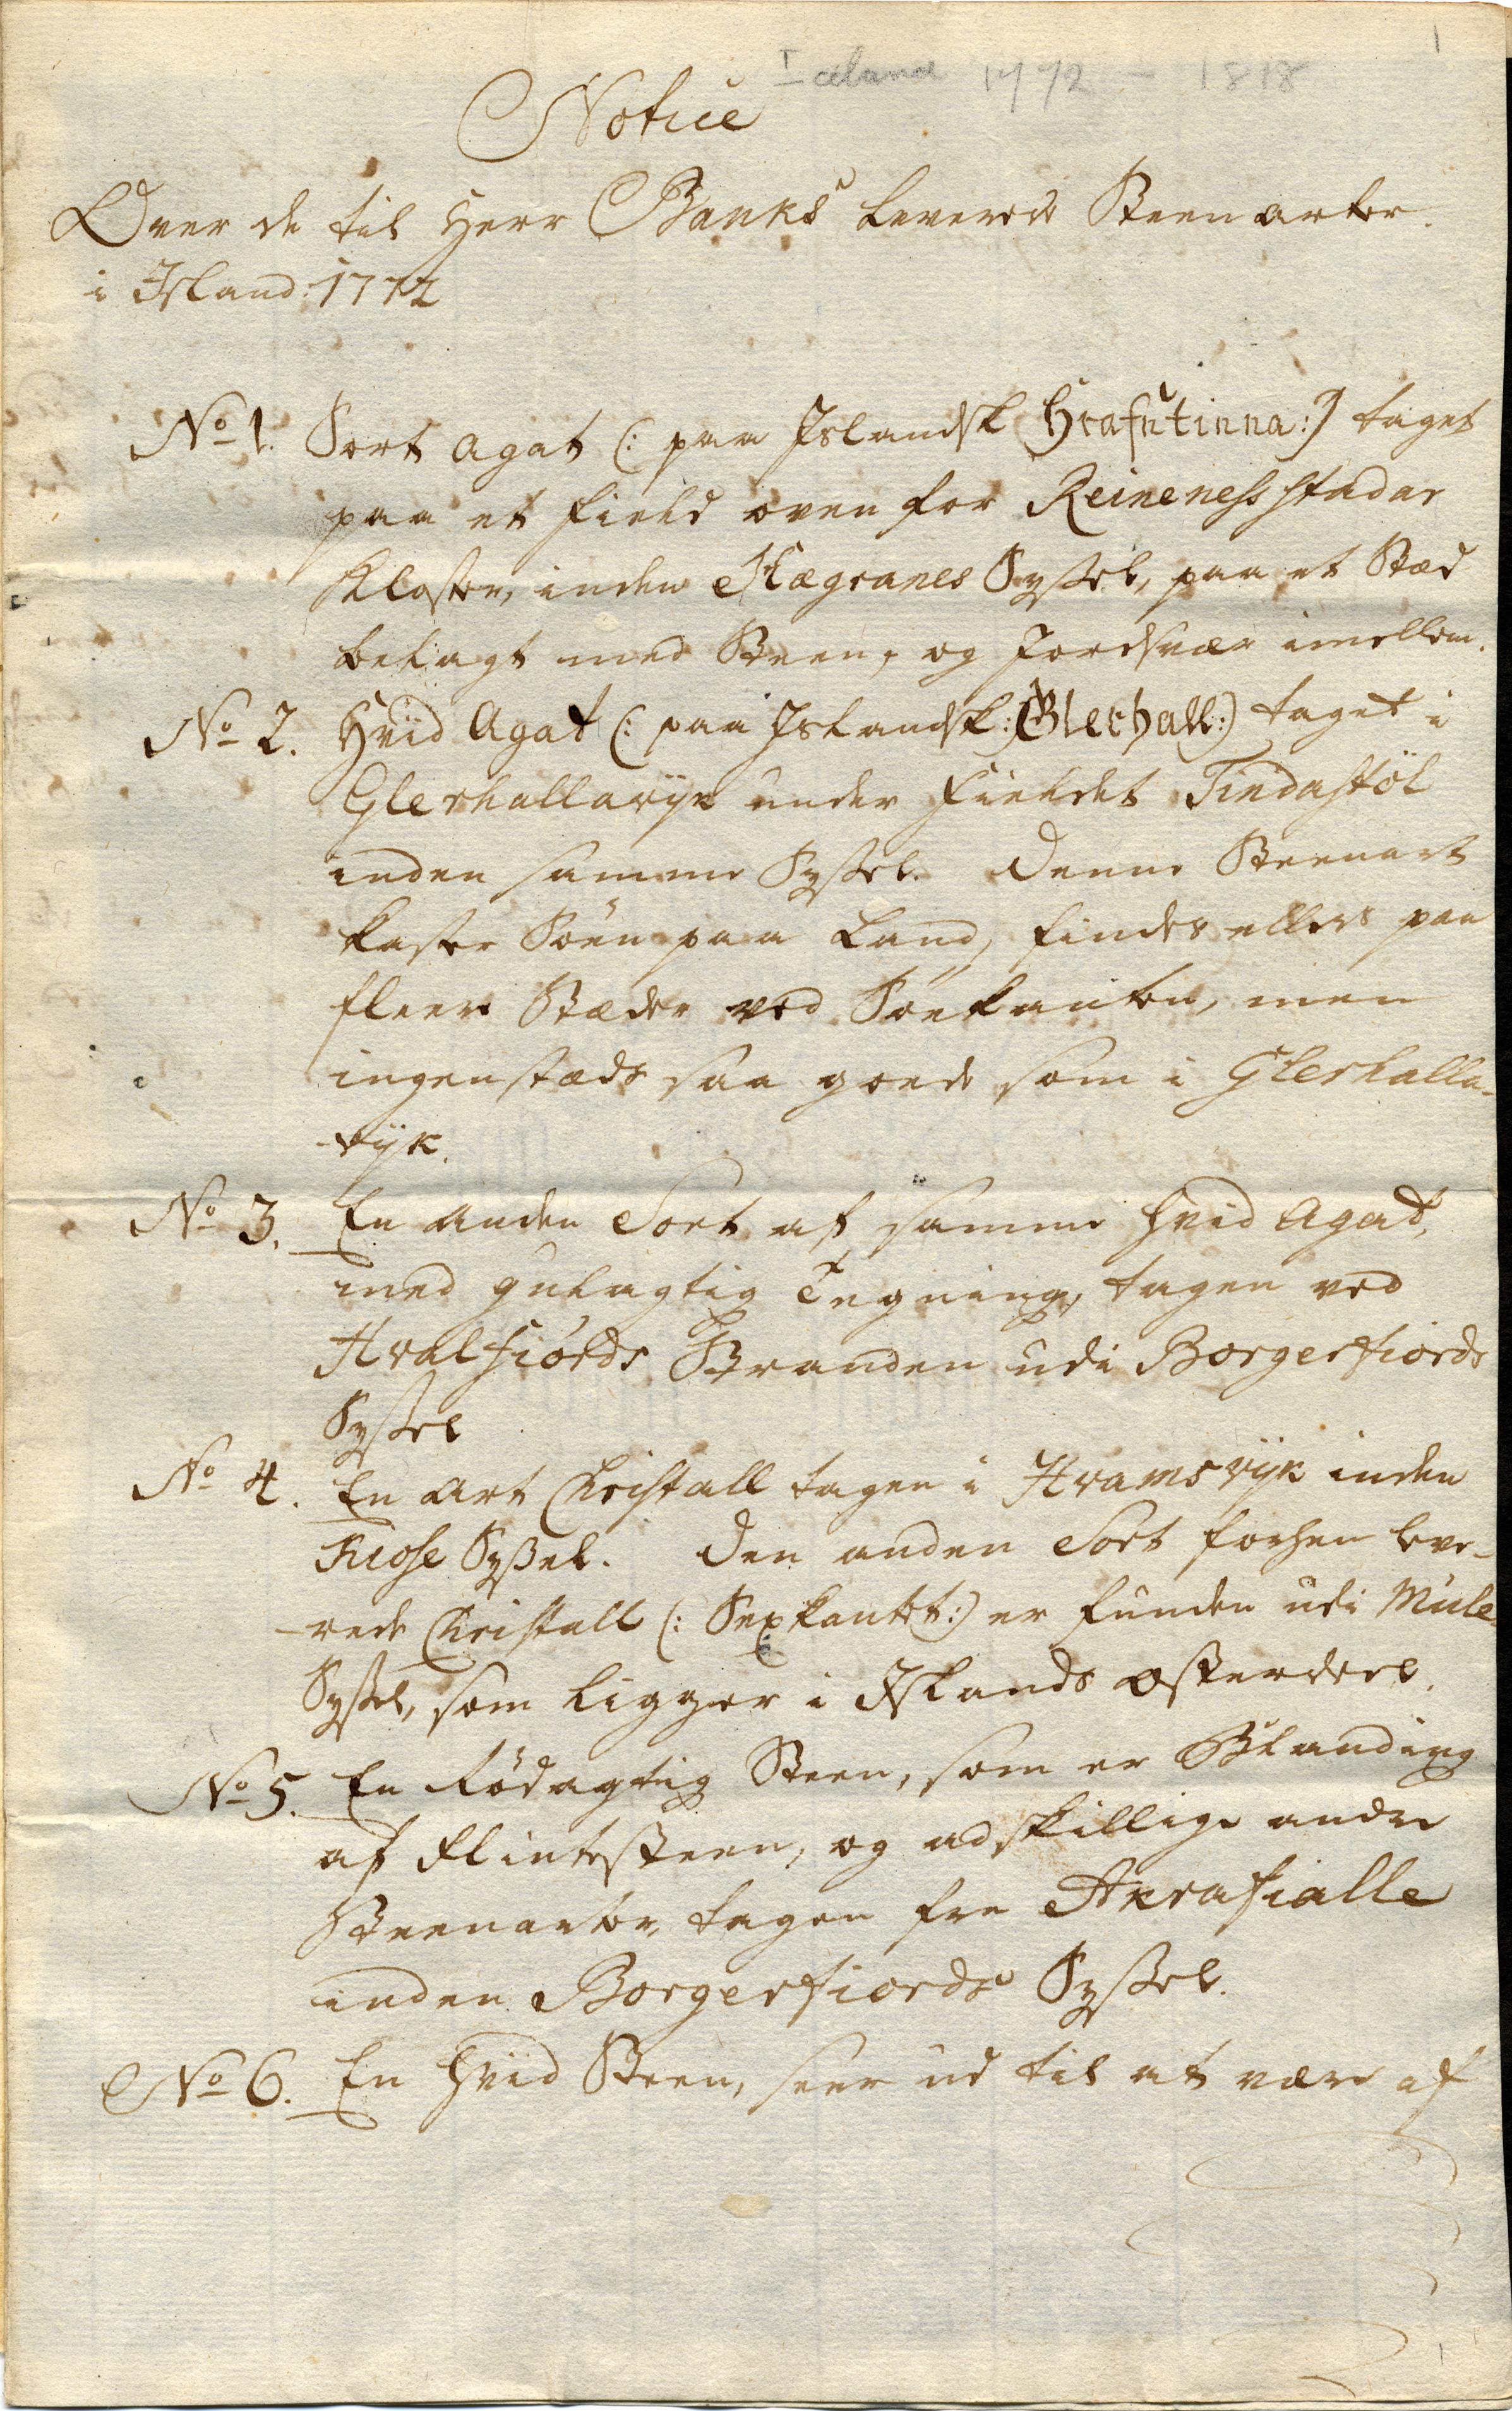 Iceland 1772 - 1818
1
Notice
Over de til Herr Banks leverede Steenarter
i Island: 1772
No 1. Sort Agat (: paa Islandsk Hrafntinna :) taget
paa et Field oven for Reinenessstadar
Kloster, inden Hegranes Sÿssel, paa et Stæd
belagt med Steen, og Jordsvær imellem.
No 2. Hvid Agat (: paa Islandsk: Glerhall :) taget i
Glerhallavÿk under Fieldet Tindastöl
inden samme Sÿssel. Denne Steenart
kaster Söen paa Land, findes ellers paa
fleere Stæder ved Söekanten, men
ingenstæds saa goede som i Glerhalla-
-vÿk.
No 3. En anden Sort af samme hvid Agat,
med gulagtig Tegning, tagen ved
Hvalfiörds Stranden udi Borgerfiords
Sÿssel
No 4. En Art Christall tagen i Hvamsvÿk inden
Kiose Sÿssel. Den anden Sort forhen leve-
-rede Christall (: Sexkantet :) er funden udi Mule
Sÿssel, som ligger i Islands Østerdeel.
No 5. En Rödagtig Steen, som er Blanding
af Flintesteen, og adskillige andre
Steenarter, tagen fra Akrafialle
inden Borgerfiords Sÿssel.
No 6. En hvid Steen, seer ud til at være af